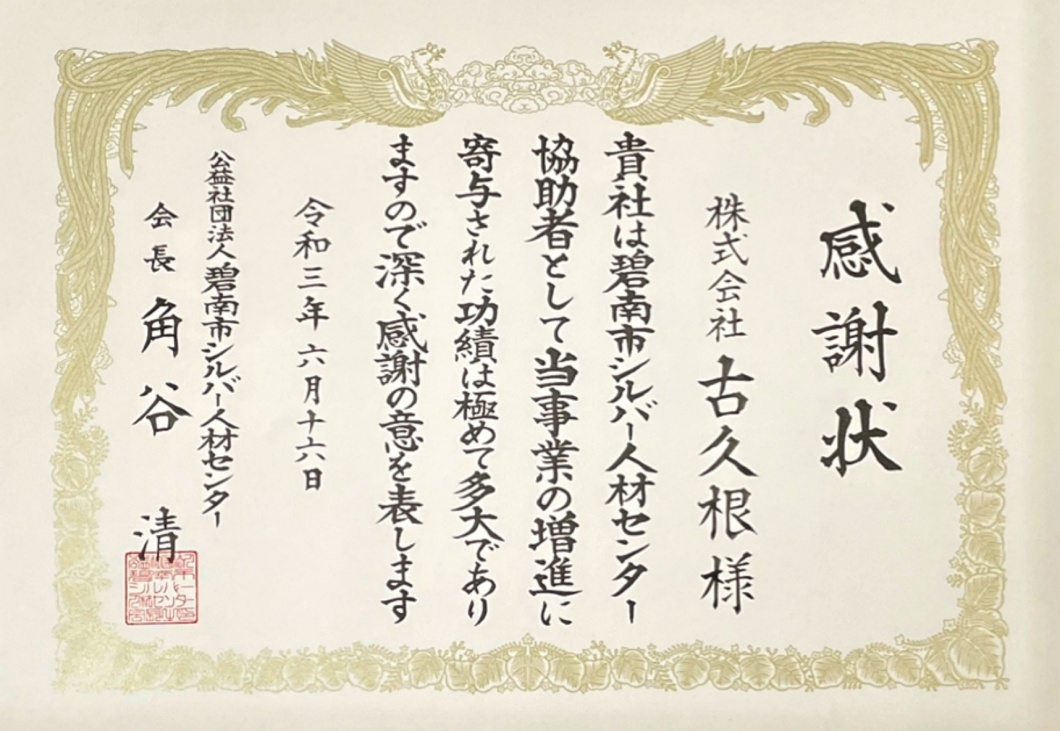 感謝状
株式会社 古久根 様
貴社は碧南市シルバー人材センター
協助者として当事業の増進に
寄与された功績は極めて多大であり
ますので深く感謝の意を表します
令和三年 六月十六日
公益社団法人 碧南市シルバー人材センター
会長 角谷 清